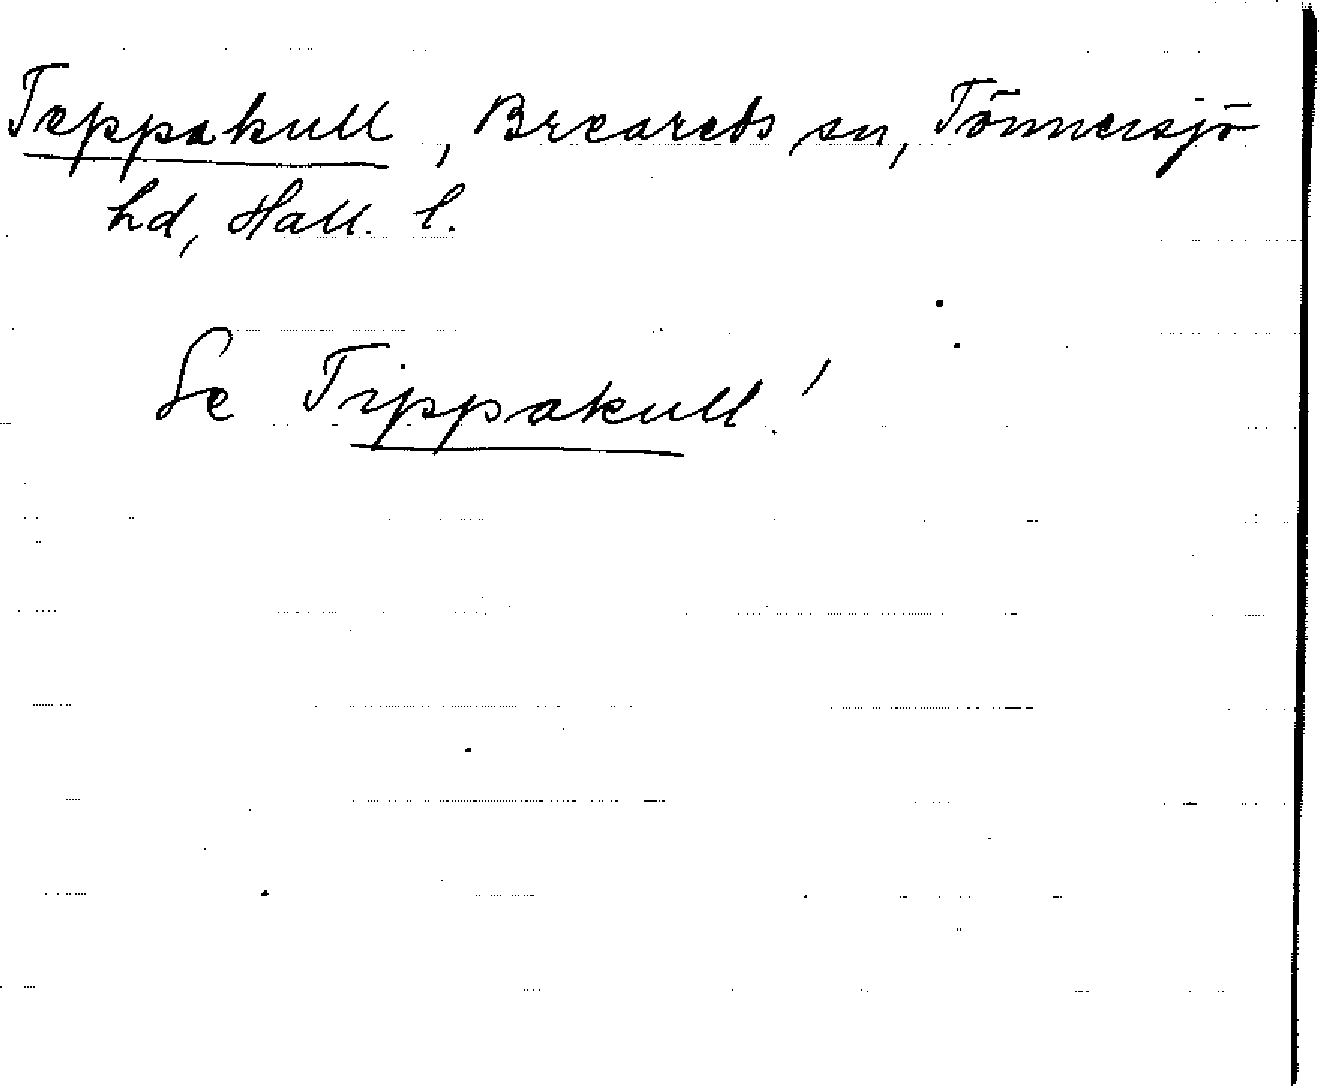 Teppakull, Breareds sn, Tönnersjö
hd, Hall. l.
Se Tippakull!